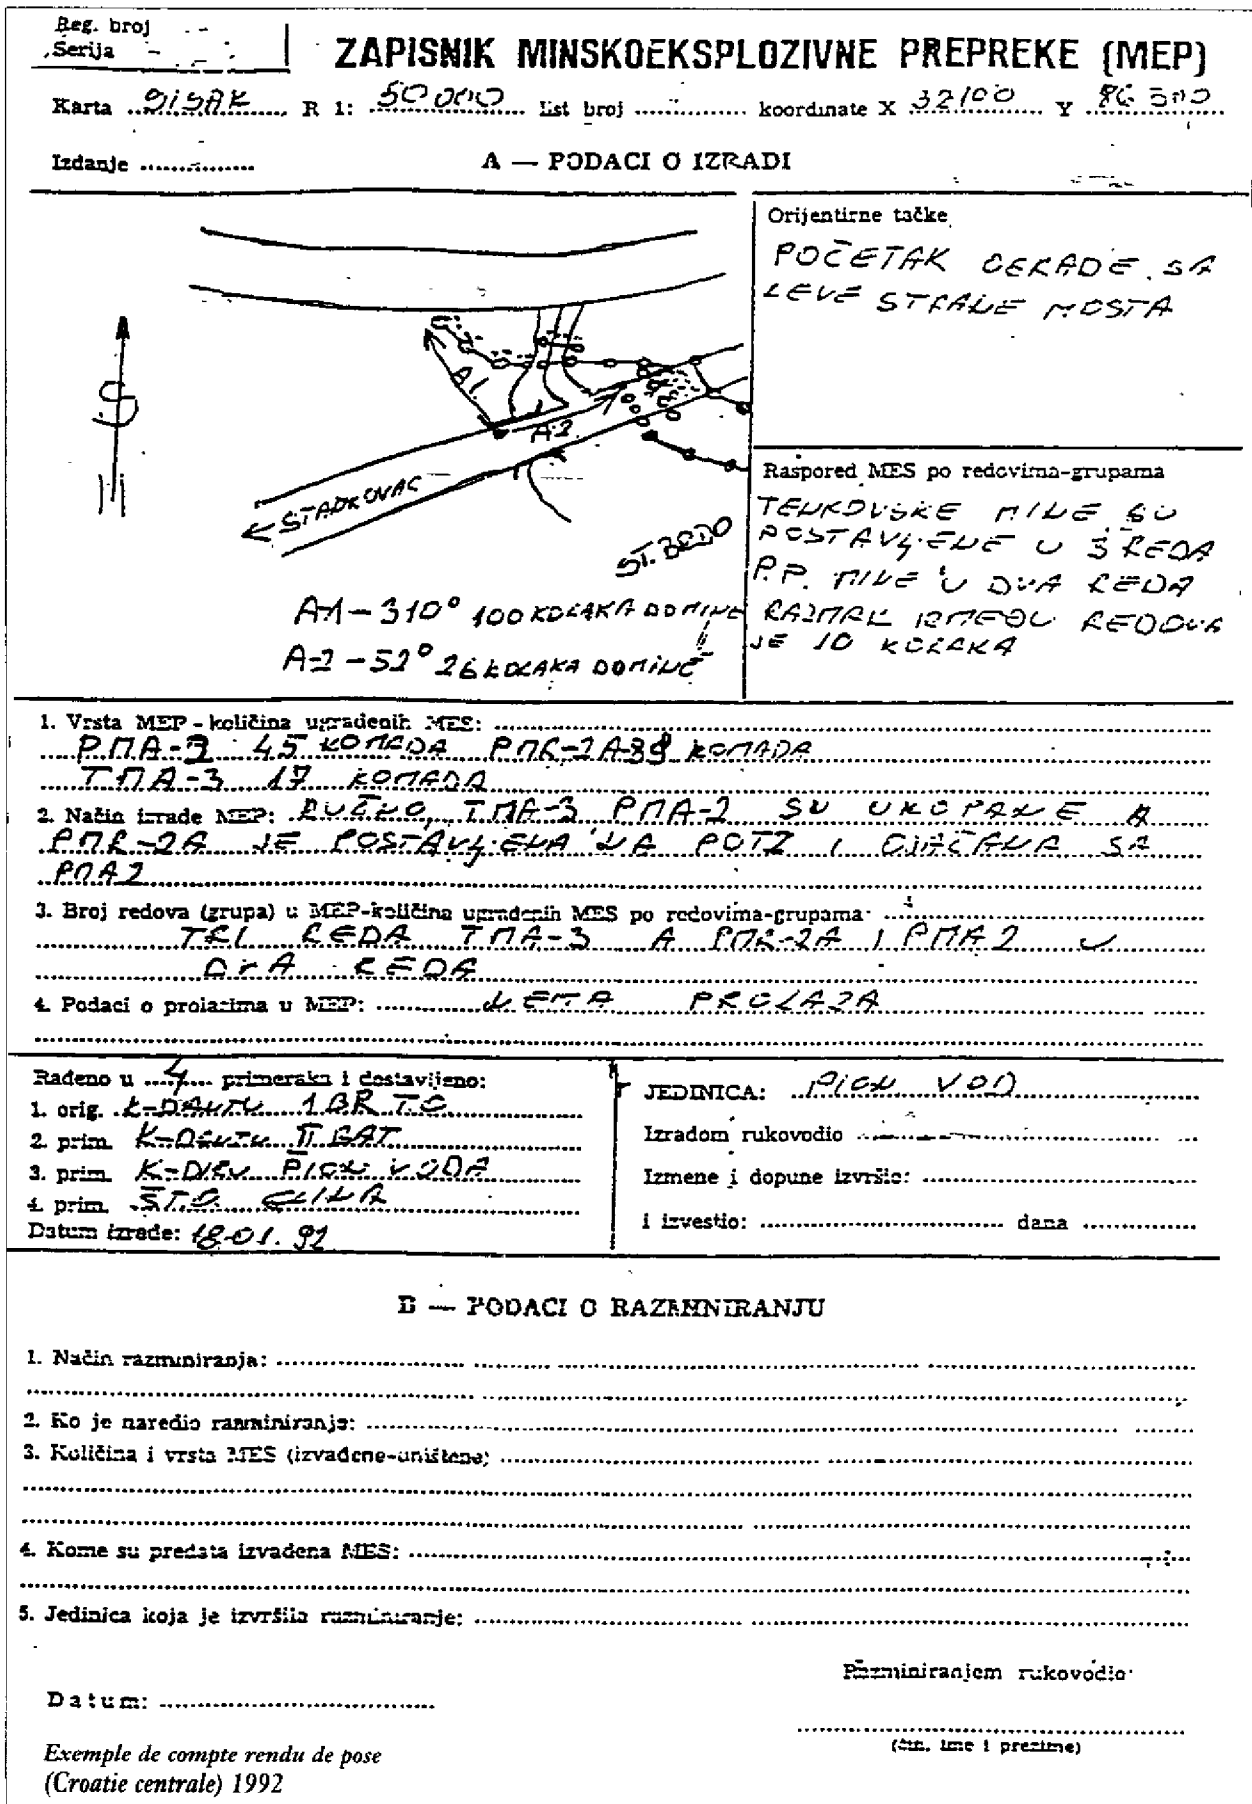 Reg. broj
Serija
ZAPISNIK MINSKOEKSPLOZIVNE PREPREKE (MEP)
Karta SISAK R 1: 50000 list broj koordinate X 32100 Y
Izdanje
A — PODACI O IZRADI
Orijentirne tačke
POČETAK OGRADE SA
LEVE STRANE MOSTA
S
A1
A-2
STANKOVAC
ST. BRDO
A-1 – 310° 100 KORAKA DOMINE
A-2 – 52° 26 KORAKA DOMINE
Raspored MES po redovima-grupama
TENKOVSKE MINE SU
POSTAVLJENE U 3 REDA
P.P. MINE U DVA REDA
RAZMAK IZMEĐU REDOVA
JE 10 KORAKA
1. Vrsta MEP - količina ugrađenih MES:
45 KOMADA PMR-2A KOMADA
TMA-3 17 KOMADA
2. Način izrade MEP: RUČNO, TMA-3 PMA-2 SU UKOPANE A
PMR-2A JE POSTAVLJENA NA POTZ I OJAČANA SA
PMA2
3. Broj redova (grupa) u MEP-količina ugrađenih MES po redovima-grupama
TRI REDA TMA-3 A PMR-2A I PMA2 U
DVA REDA
4. Podaci o prolazima u MEP: NEMA PROLAZA
Rađeno u 4 primeraka i dostavljeno:
1. orig. K-DANTU 1 BR T.O
2. prim. K-DANTU II BAT
3. prim. K-DIRU PION VODA
4. prim. ŠT.O. GLINA
Datum izrade: 18.01.92
JEDINICA: PION VOD
Izradom rukovodio
Izmene i dopune izvršio:
i izvestio: dana
B — PODACI O RAZMINIRANJU
1. Način razminiranja:
2. Ko je naredio razminiranje:
3. Količina i vrsta MES (izvađene-uništene)
4. Kome su predata izvađena MES:
5. Jedinica koja je izvršila razminiranje:
Razminiranjem rukovodio
Datum:
(čin, ime i prezime)
Exemple de compte rendu de pose
(Croatie centrale) 1992